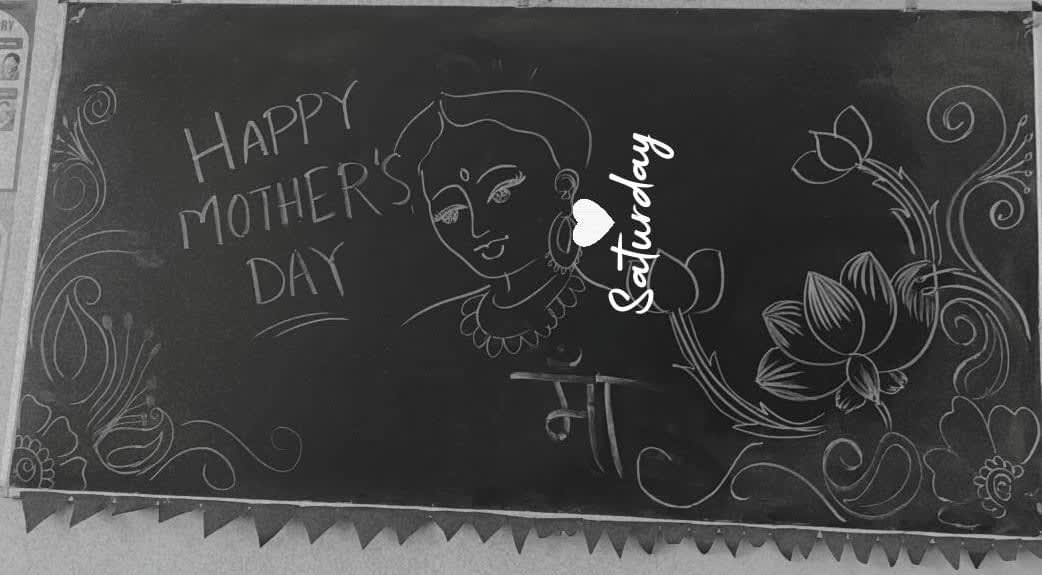 HAPPY
MOTHER'S
DAY
Saturday
माँ